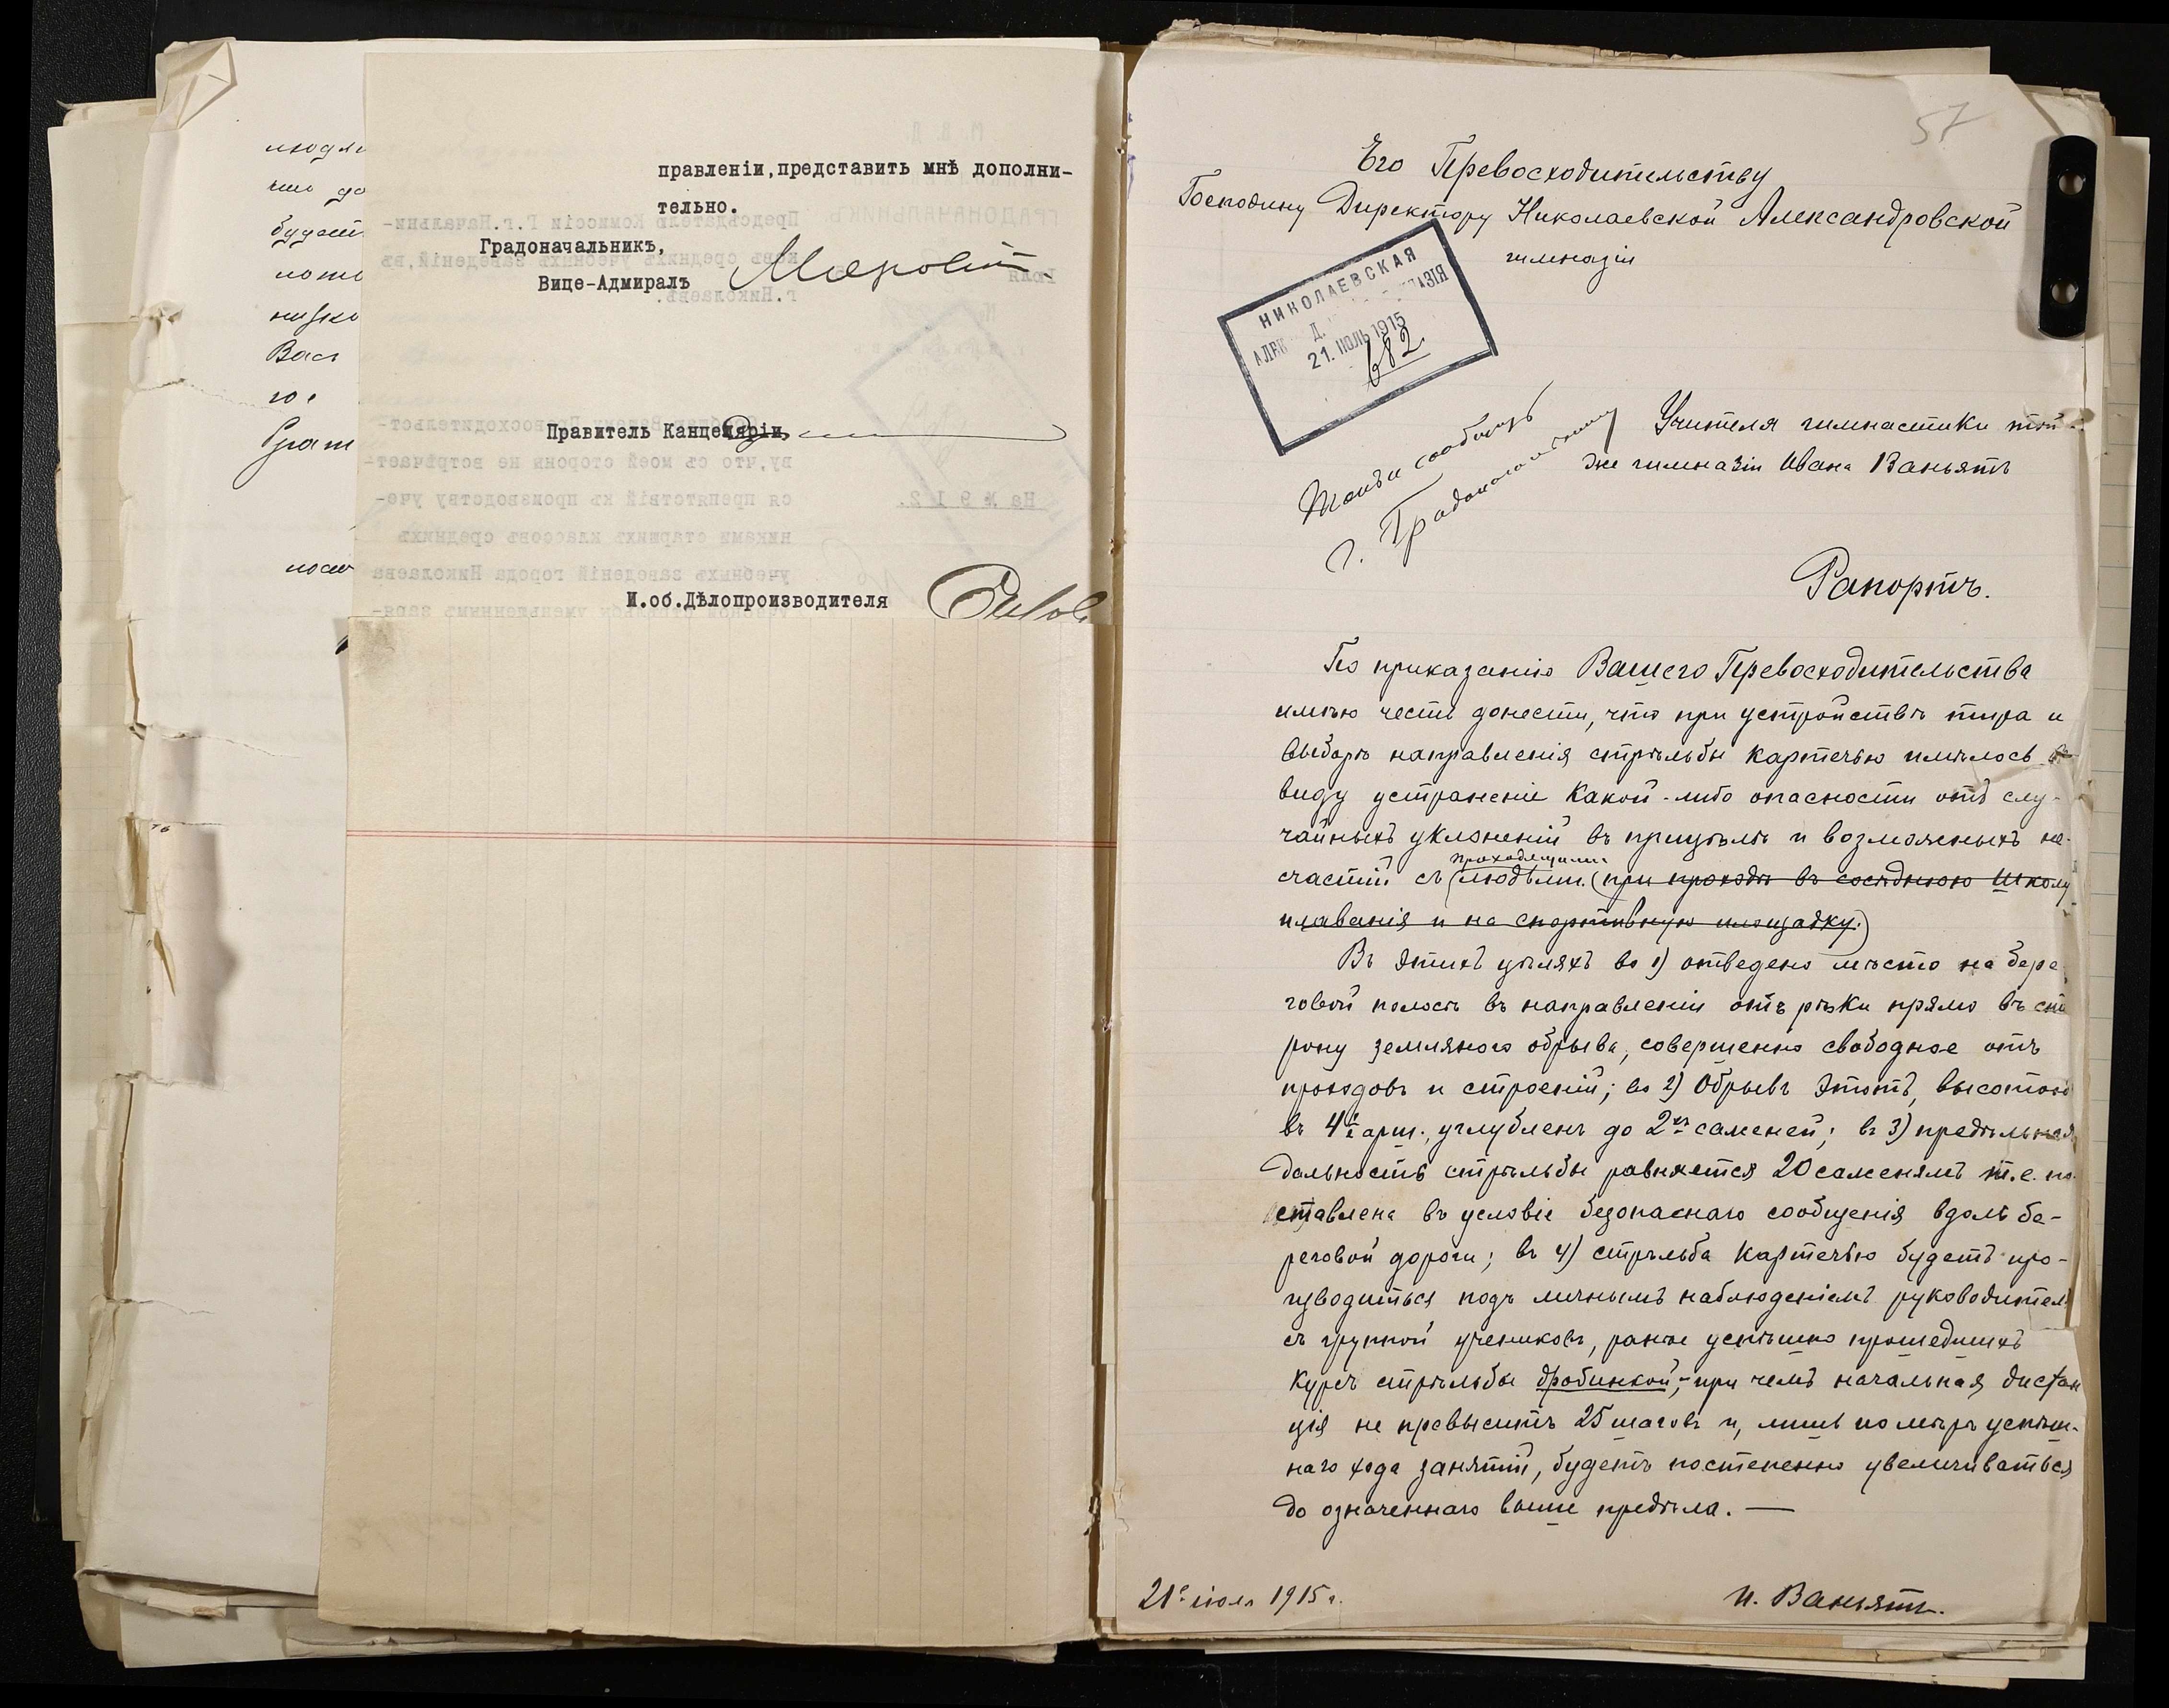 правленіи, представить мнѣ дополни-
тельно.
Градоначальникъ,
Вице-Адмиралъ
Правитель Канцеляріи,
И.об.Дѣлопроизводителя
людя
будет
Вас
57
Его Превосходительству
Господину Директору Николаевской Александровской
гимназіи
НИКОЛАЕВСКАЯ
21. ІЮЛЬ 1915
682
сообщить
г. Градоначальнику
Учителя гимнастики той-
же гимназіи Ивана Ваньятъ
Рапортъ.
По приказанію Вашего Превосходительства
имѣю честь донести, что при устройствѣ тира и
выборѣ направленія стрѣльбы картечью имѣлось въ
виду устраненіе какой-либо опасности отъ слу-
чайныхъ уклоненій въ прицѣлѣ и возможныхъ не-
проходящими
счастій съ (людьми. (при проходѣ въ сосѣднюю Школу
плаванія и на спортивную площадку.)
Въ этихъ цѣляхъ во 1) отведено мѣсто на бере-
говой полосѣ въ направленіи отъ рѣки прямо въ сто
рону земляного обрыва, совершенно свободное отъ
проходовъ и строеній; во 2) Обрывъ этотъ, высотою
въ 4½ арш., углубленъ до 2хъ саженей; въ 3) предѣльная
дальность стрѣльбы равняется 20 саженямъ т.е. по-
ставлена въ условіе безопаснаго сообщенія вдоль бе-
реговой дороги; въ 4) стрѣльба картечью будетъ про-
изводиться подъ личнымъ наблюденіемъ руководителя
съ группой учениковъ, ранѣе успѣшно прошедшихъ
курсъ стрѣльбы дробинкой, - при чемъ начальная дистан
ція не превыситъ 25 шаговъ и, лишь по мѣрѣ успѣш-
наго хода занятій, будетъ постепенно увеличиваться
до означеннаго выше предѣла. —
21го іюля 1915 г.
И. Ваньятъ.